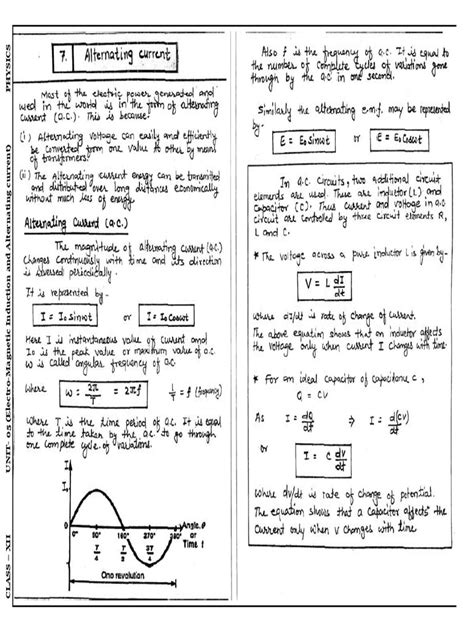 PHYSICS
UNIT- 05 (Electro-Magnetic Induction and Alternating current)
CLASS – XII
7. Alternating current
Most of the electric power generated and
used in the world is in the form of alternating
current (a.c.). This is because:
(i) Alternating voltage can easily and efficiently
be converted from one value to other by means
of transformers.
(ii) The alternating current energy can be transmitted
and distributed over long distances economically
without much loss of energy.
Alternating Current (a.c.)
The magnitude of alternating current (a.c.)
changes continuously with time and its direction
is reversed periodically.
It is represented by -
I = Io sinωt or I = Io cosωt
Here I is instantaneous value of current and
Io is the peak value or maximum value of a.c.
ω is called angular frequency of a.c.
where ω = 2π/T = 2πf 1/T = f (frequency)
Where T is the time period of a.c. It is equal
to the time taken by the a.c. to go through
one complete cycle of variations.
I
I₀
0
0° 90° 180° 270° 360°
Angle, θ
or
Time t
T/4 T/2 3T/4 T
One revolution
Also f is the frequency of a.c. It is equal to
the number of complete cycles of variations gone
through by the a.c in one second.
Similarly the alternating e.m.f. may be represented
by -
E = Eo sinωt or E = Eo cosωt
In a.c. circuits, two additional circuit
elements are used. These are inductor (L) and
Capacitor (C). Thus current and voltage in a.c
circuit are controlled by three circuit elements R,
L and C.
* The voltage across a pure inductor L is given by-
V = L dI/dt
where dI/dt is rate of change of current.
The above equation shows that an inductor affects
the voltage only when current I changes with time.
* For an ideal capacitor of capacitance C,
Q = CV
As I = dQ/dt ⇒ I = d(CV)/dt
or I = C dV/dt
where dV/dt is rate of change of potential.
The equation shows that a capacitor affects the
current only when V changes with time